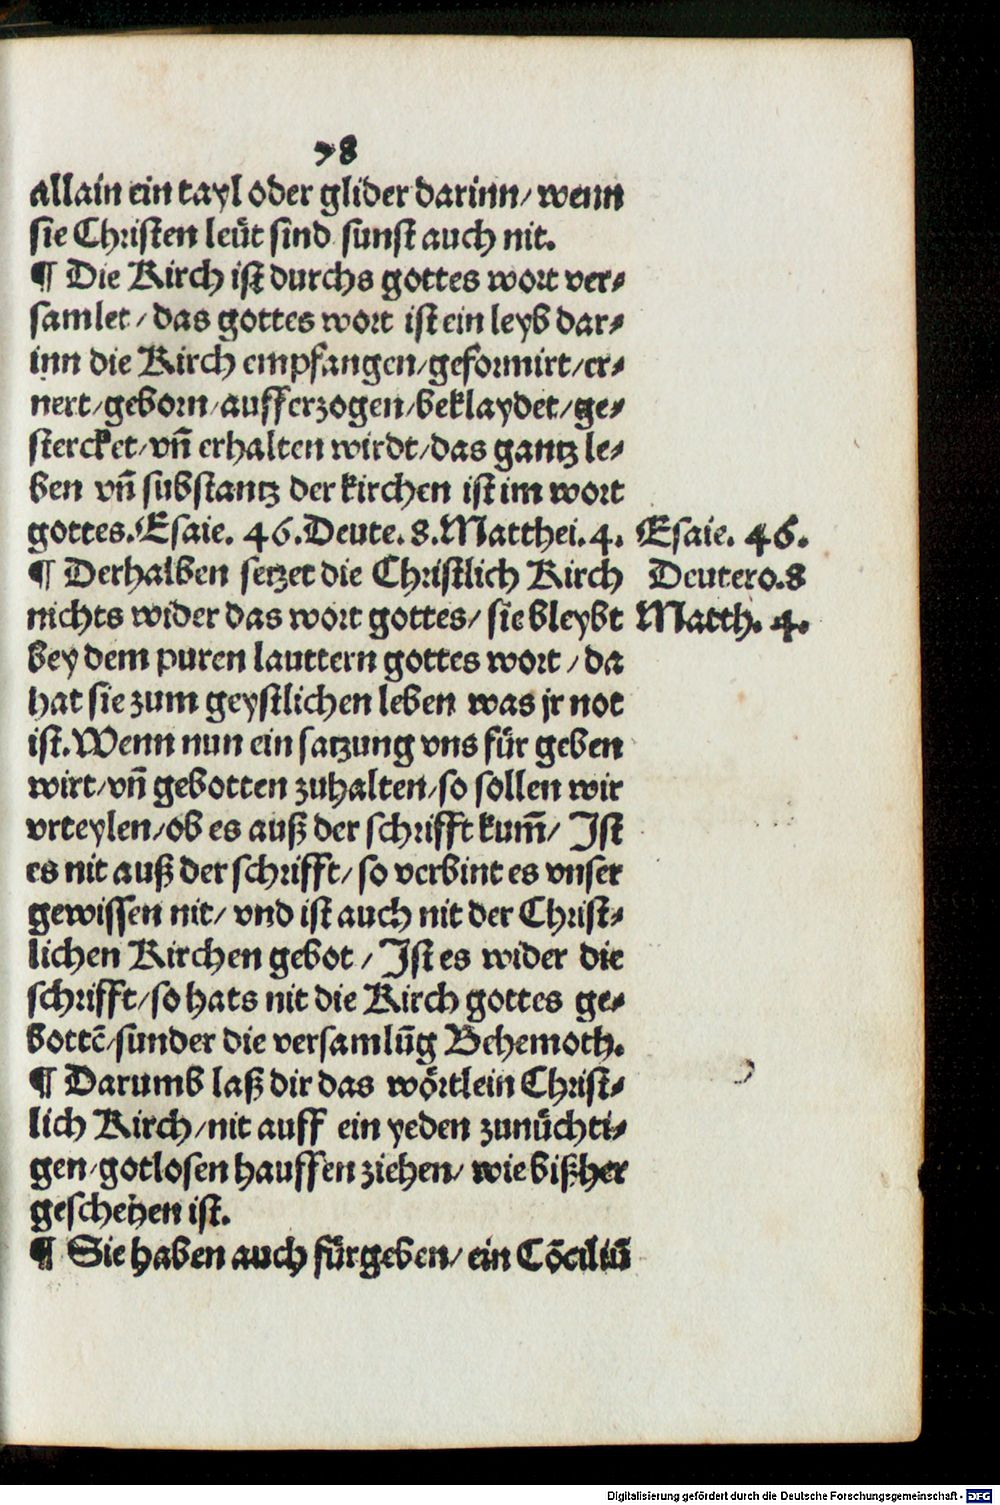 78
allain ein tayl oder glider darinn/ wenn
sie Christen leüt sind sunst auch nit.
¶ Die Kirch ist durchs gottes wort ver⸗
samlet / das gottes wort ist ein leyb dar⸗
inn die Kirch empfangen/geformirt/er⸗
nert/geborn/aufferzogen/beklaydet/ge⸗
stercket/vn̄ erhalten wirdt/das gantz le⸗
ben vn̄ substantz der kirchen ist im wort
gottes. Esaie. 46. Deute. 8. Matthei. 4. Esaie. 46.
¶ Derhalben setzet die Christlich Kirch Deutero. 8
nichts wider das wort gottes/ sie bleybt Matth. 4.
bey dem puren lauttern gottes wort / da
hat sie zum geystlichen leben was jr not
ist. Wenn nun ein satzung vns für geben
wirt/vn̄ gebotten zuhalten/so sollen wir
vrteylen/ob es auß der schrifft kum̄/ Ist
es nit auß der schrifft/ so verbint es vnser
gewissen nit/ vnd ist auch nit der Christ⸗
lichen Kirchen gebot / Ist es wider die
schrifft/so hats nit die Kirch gottes ge⸗
bottē/sunder die versamlūg Behemoth.
¶ Darumb laß dir das wörtlein Christ⸗
lich Kirch/nit auff ein yeden zunüchti⸗
gen/gotlosen hauffen ziehen/ wie bißher
geschehen ist.
¶ Sie haben auch fürgeben/ ein Cōciliū
Digitalisierung gefördert durch die Deutsche Forschungsgemeinschaft - DFG